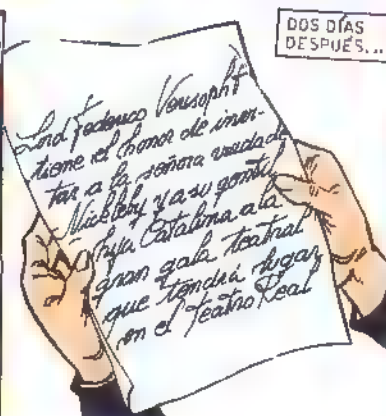 DOS DÍAS
DESPUÉS...
Lord Federico Verisopht
tiene el honor de invi-
tar a la señora viuda de
Nickleby y a su gentil
hija Catalina a la
gran gala teatral
que tendrá lugar
en el teatro Real